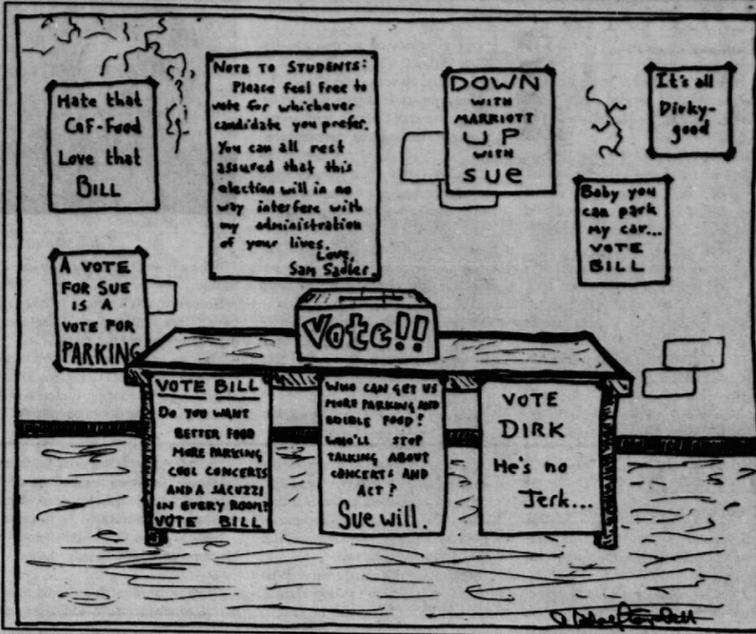 Hate that
Caf-Food
Love that
BILL
NOTE TO STUDENTS:
Please feel free to
vote for whichever
candidate you prefer.
You can all rest
assured that this
election will in no
way interfere with
my administration
of your lives.
Love,
Sam Sadler.
DOWN
WITH
MARRIOTT
UP
WITH
SUE
It's all
Dirky-
good
Baby you
can park
my car...
VOTE
BILL
A VOTE
FOR SUE
IS A
VOTE FOR
PARKING
Vote!!
VOTE BILL
DO YOU WANT
BETTER FOOD
MORE PARKING
COOL CONCERTS
AND A JACUZZI
IN EVERY ROOM?
VOTE BILL
WHO CAN GET US
MORE PARKING AND
EDIBLE FOOD?
WHO'LL STOP
TALKING ABOUT
CONCERTS AND
ACT?
Sue will.
VOTE
DIRK
He's no
Jerk...